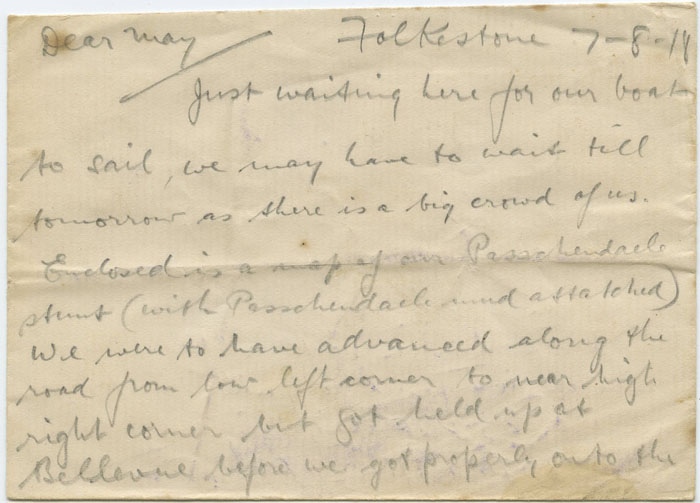 Dear May Folkestone 7-8-18
Just waiting here for our boat
to sail, we may have to wait till
tomorrow as there is a big crowd of us.
Enclosed is a map of our Passchendaele
stunt (with Passchendaele mud attatched)
We were to have advanced along the
road from low left corner to near high
right corner but got held up at
Bellevue before we got properly onto the